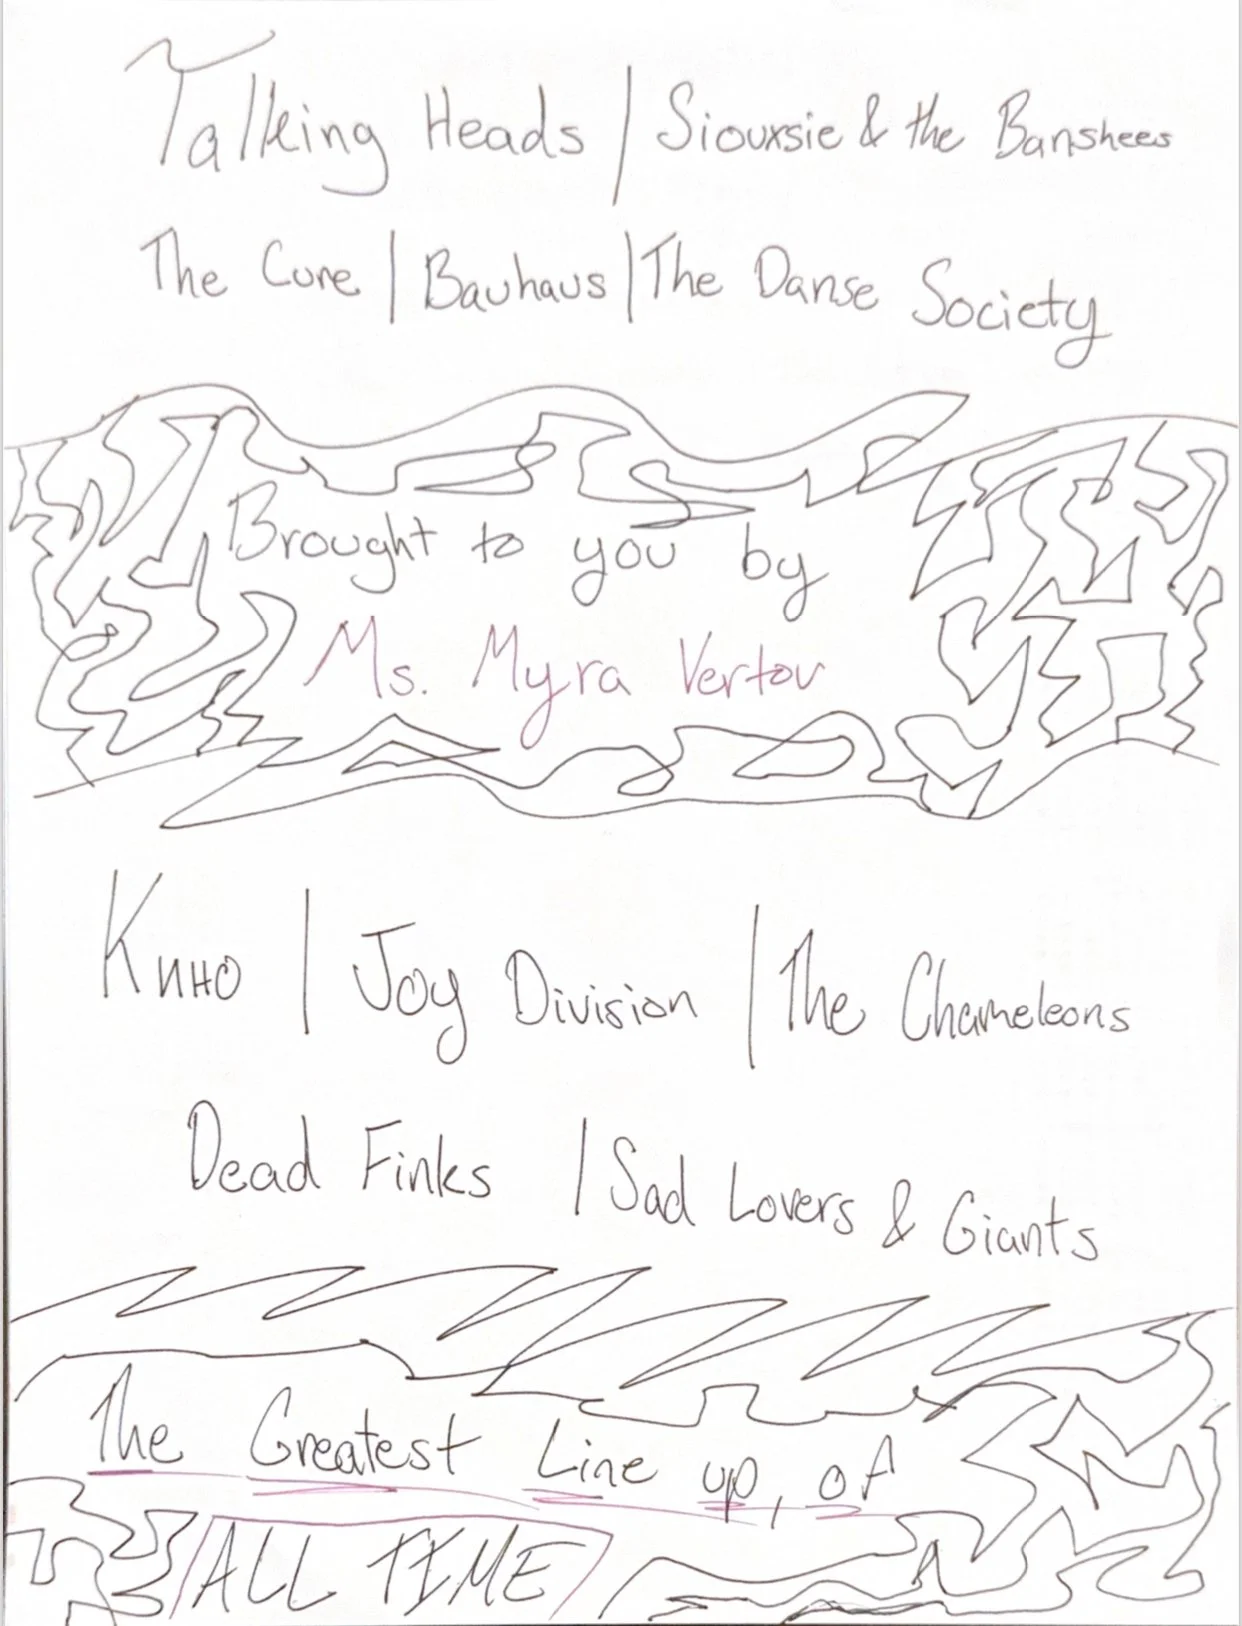 Talking Heads | Siouxsie & the Banshees
The Cure | Bauhaus | The Danse Society
Brought to you by
Ms. Myra Vertov
Кино | Joy Division | The Chameleons
Dead Finks | Sad Lovers & Giants
The Greatest Line up, of
ALL TIME